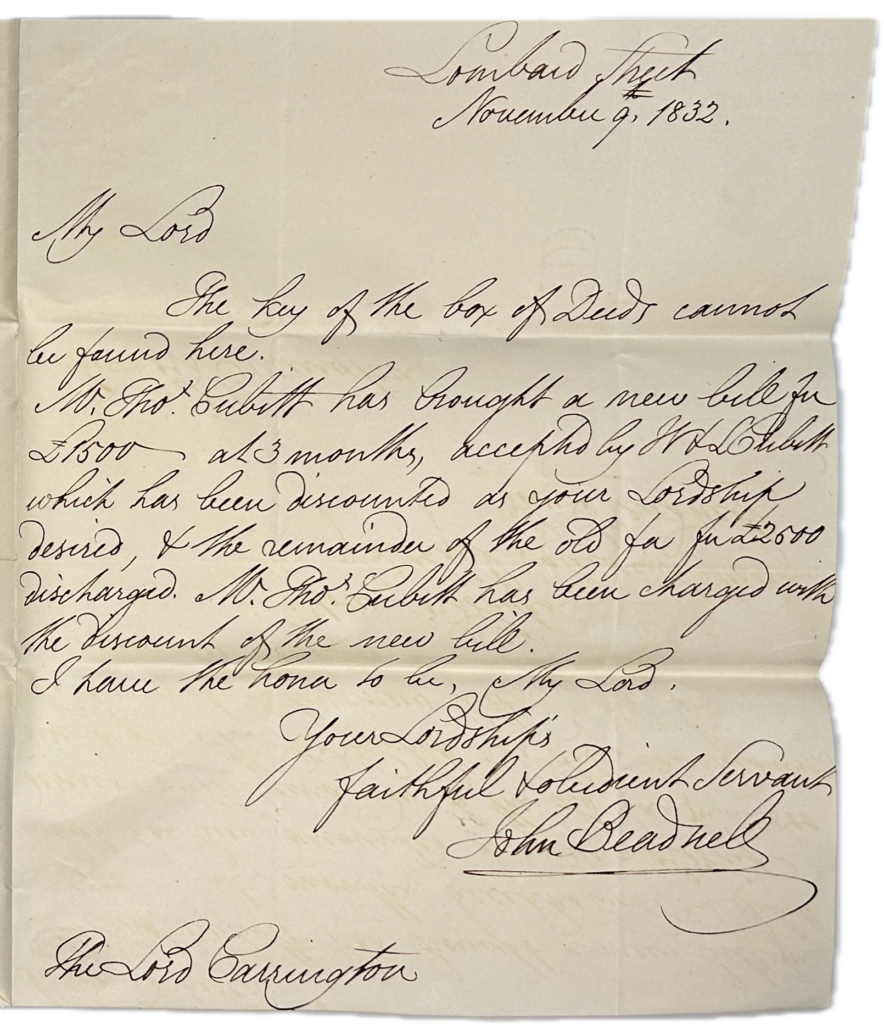 Lombard Street
November 9th. 1832.
My Lord
The key of the box of Deeds cannot
be found here.
Mr. Thos. Cubitt has brought a new bill for
£1500 at 3 months, accepted by W & L Cubitt
which has been discounted as your Lordship
desired, & the remainder of the old for £2500
discharged. Mr. Thos. Cubitt has been charged with
the discount of the new bill.
I have the honor to be, My Lord.
Your Lordship's
faithful & obedient Servant
John Beadnell
The Lord Carrington